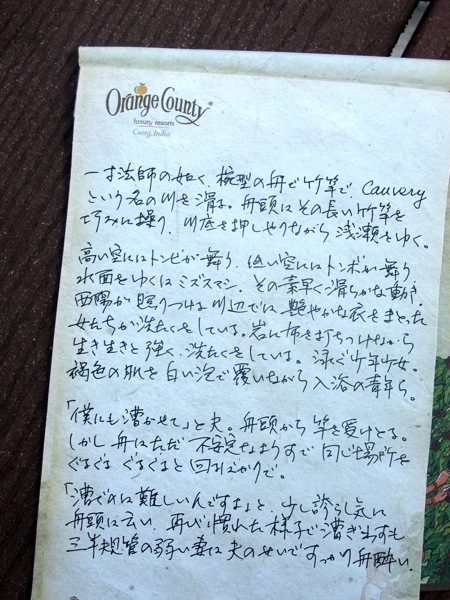 Orange County®
luxury resorts
Coorg, India
一寸法師の如く、椀型の舟で竹竿で、Cauvery
という名の川を滑る。舟頭はその長い竹竿を
巧みに操り、川底を押しやりながら 浅瀬をゆく。
高い空にはトンビが舞う、低い空にはトンボが舞う
水面をゆくはミズスマシ、その素早く滑らかな動き
西陽が照りつける川辺では 艶やかな衣をまとった
女たちが洗たくをしている。岩に布を打ちつけながら
生き生きと強く、洗たくをしている。泳ぐ少年少女。
褐色の肌を白い泡で覆いながら 入浴の青年ら。
「僕にも漕がせて」と夫。舟頭から竿を受けとる。
しかし舟はただ 不安定なようすで 同じ場所を
ぐるぐる ぐるぐると 回るばかりで。
「漕ぐのは難しいんですよ」と、少し誇らし気に
舟頭は云い、再び慣れた様子で漕ぎ出すも
三半規管の弱い妻は 夫のせいですっかり 舟酔い。